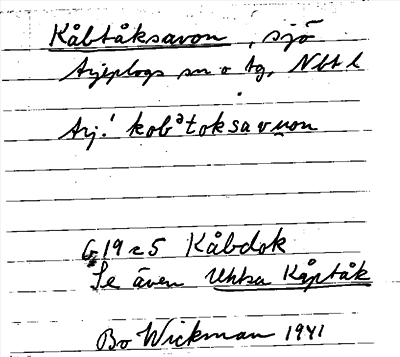 Kåbtåksavon, sjö
Arjeplogs sn o tg, Nbt l
Arj.! kobᵊtoksavu̯on
G 19 c 5 Kåbdok
Se även Uhtsa Kåptåk
Bo Wickman 1941